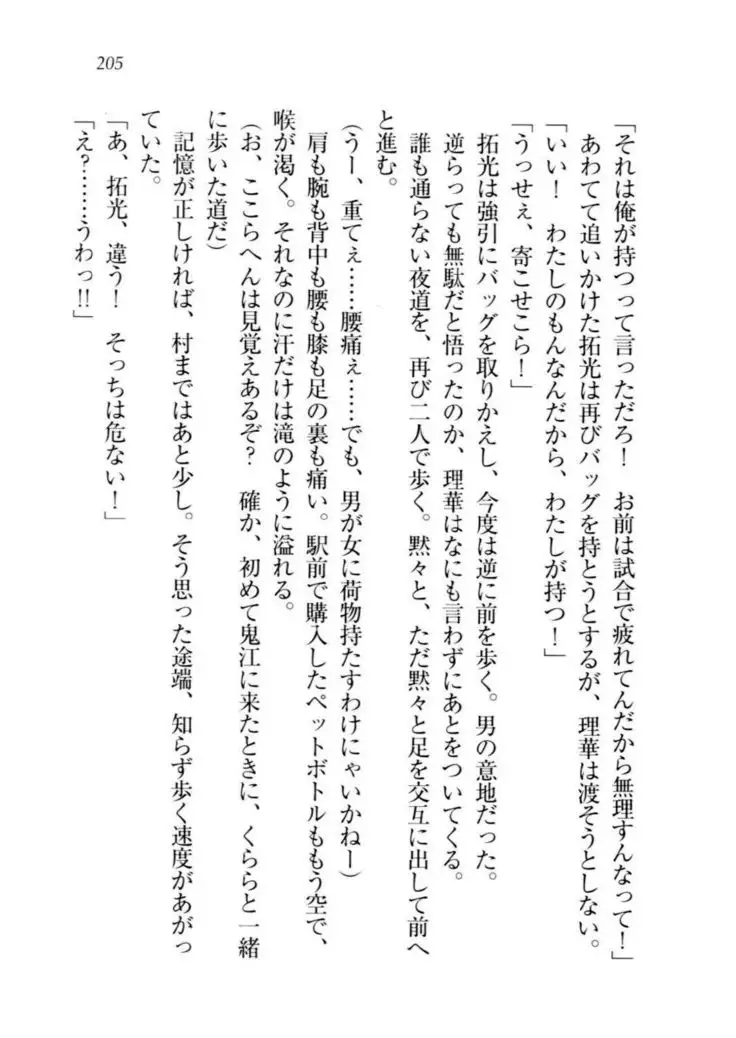 205
「それは俺が持つって言っただろ！　お前は試合で疲れてんだから無理すんなって！」
あわてて追いかけた拓光は再びバッグを持とうとするが、理華は渡そうとしない。
「いい！　わたしのもんなんだから、わたしが持つ！」
「うっせぇ、寄こせこら！」
拓光は強引にバッグを取りかえし、今度は逆に前を歩く。男の意地だった。
逆らっても無駄だと悟ったのか、理華はなにも言わずにあとをついてくる。
誰も通らない夜道を、再び二人で歩く。黙々と、ただ黙々と足を交互に出して前へ
と進む。
（うー、重てぇ……腰痛ぇ……でも、男が女に荷物持たすわけにゃいかねー）
肩も腕も背中も腰も膝も足の裏も痛い。駅前で購入したペットボトルももう空で、
喉が渇く。それなのに汗だけは滝のように溢れる。
（お、ここらへんは見覚えあるぞ？　確か、初めて鬼江に来たときに、くららと一緒
に歩いた道だ）
記憶が正しければ、村まではあと少し。そう思った途端、知らず歩く速度があがっ
ていた。
「あ、拓光、違う！　そっちは危ない！」
「え？………うわっ!!」